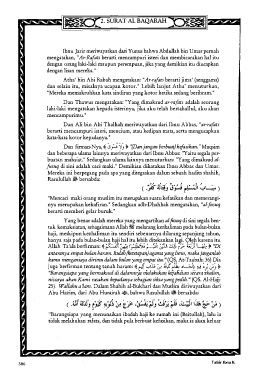 2. SURAT AL BAQARAH
Ibnu Jarir meriwayatkan dari Yunus bahwa Abdullah bin Umar pernah
mengatakan, "Ar-Rafats berarti mencampuri isteri dan membicarakan hal itu
dengan orang laki-laki maupun perempuan, jika yang demikian itu diucapkan
dengan lisan mereka."
Atha' bin Abi Rabah mengatakan: "Ar-rafats berarti jima' (senggama)
dan selain itu, misalnya ucapan kotor." Lebih lanjut Atha' menuturkan,
"Mereka memakruhkan kata sindiran yang kotor ketika sedang berihram."
Dan Thawus mengatakan: "Yang dimaksud ar-rafats adalah seorang
laki-laki mengatakan kepada isterinya, jika aku telah bertahallul, aku akan
mencampurimu."
Dan Ali bin Abi Thalhah meriwayatkan dari Ibnu Abbas, "ar-rafats
berarti mencampuri isteri, mencium, atau kedipan mata, serta mengucapkan
kata-kata kotor kepadanya."
Dan firman-Nya, ﴿ وَلاَ فُسُوقَ ﴾ "Dan jangan berbuat kefasikan." Muqsim
dan beberapa ulama lainnya meriwayatkan dari Ibnu Abbas: "Yaitu segala per-
buatan maksiat." Sedangkan ulama lainnya menuturkan: "Yang dimaksud al-
fusuq di sini adalah caci maki." Demikian dikatakan Ibnu Abbas dan Umar.
Mereka ini berpegang pada apa yang ditegaskan dalam sebuah hadits shahih,
Rasulullah ﷺ bersabda:
( سِبَابُ الْمُسْلِمِ فُسُوقٌ وَقِتَالُهُ كُفْرٌ. )
"Mencaci maki orang muslim itu merupakan suatu kefasikan dan memerangi-
nya merupakan kekafiran." Sedangkan adh-Dhahhak mengatakan, "al-fusuq
berarti memberi gelar buruk."
Yang benar adalah mereka yang mengartikan al-fusuq di sini segala ben-
tuk kemaksiatan, sebagaimana Allah ﷻ melarang kezhaliman pada bulan-bulan
haji, meskipun kezhaliman itu sendiri sebenarnya dilarang sepanjang tahun,
hanya saja pada bulan-bulan haji hal itu lebih ditekankan lagi. Oleh karena itu
antaranya empat bulan haram. Itulah (ketetapan) agama yang lurus, maka janganlah
kamu menganiaya dirimu dalam bulan yang empat itu." (QS. At-Taubah: 36) Dia
juga berfirman mengenai tanah haram:
"Barangsiapa yang bermaksud di dalamnya melakukan kejahatan secara zhalim,
niscaya akan Kami rasakan kepadanya sebagian siksa yang pedih." (QS. Al-Hajj:
25). Wallahu a'lam. Dalam Shahih al-Bukhari dan Muslim diriwayatkan dari
Abu Hazim, dari Abu Hurairah ؓ, bahwa Rasulullah ﷺ bersabda:
( مَنْ حَجَّ هَذَا الْبَيْتَ، فَلَمْ يَرْفُثْ وَلَمْ يَفْسُقْ، خَرَجَ مِنْ ذُنُوبِهِ كَيَوْمِ وَلَدَتْهُ أُمُّهُ. )
"Barangsiapa yang menunaikan ibadah haji ke rumah ini (Baitullah), lalu ia
tidak melakukan rafats, dan tidak pula berbuat kefasikan, maka ia akan keluar
386
Tafsir Ibnu K